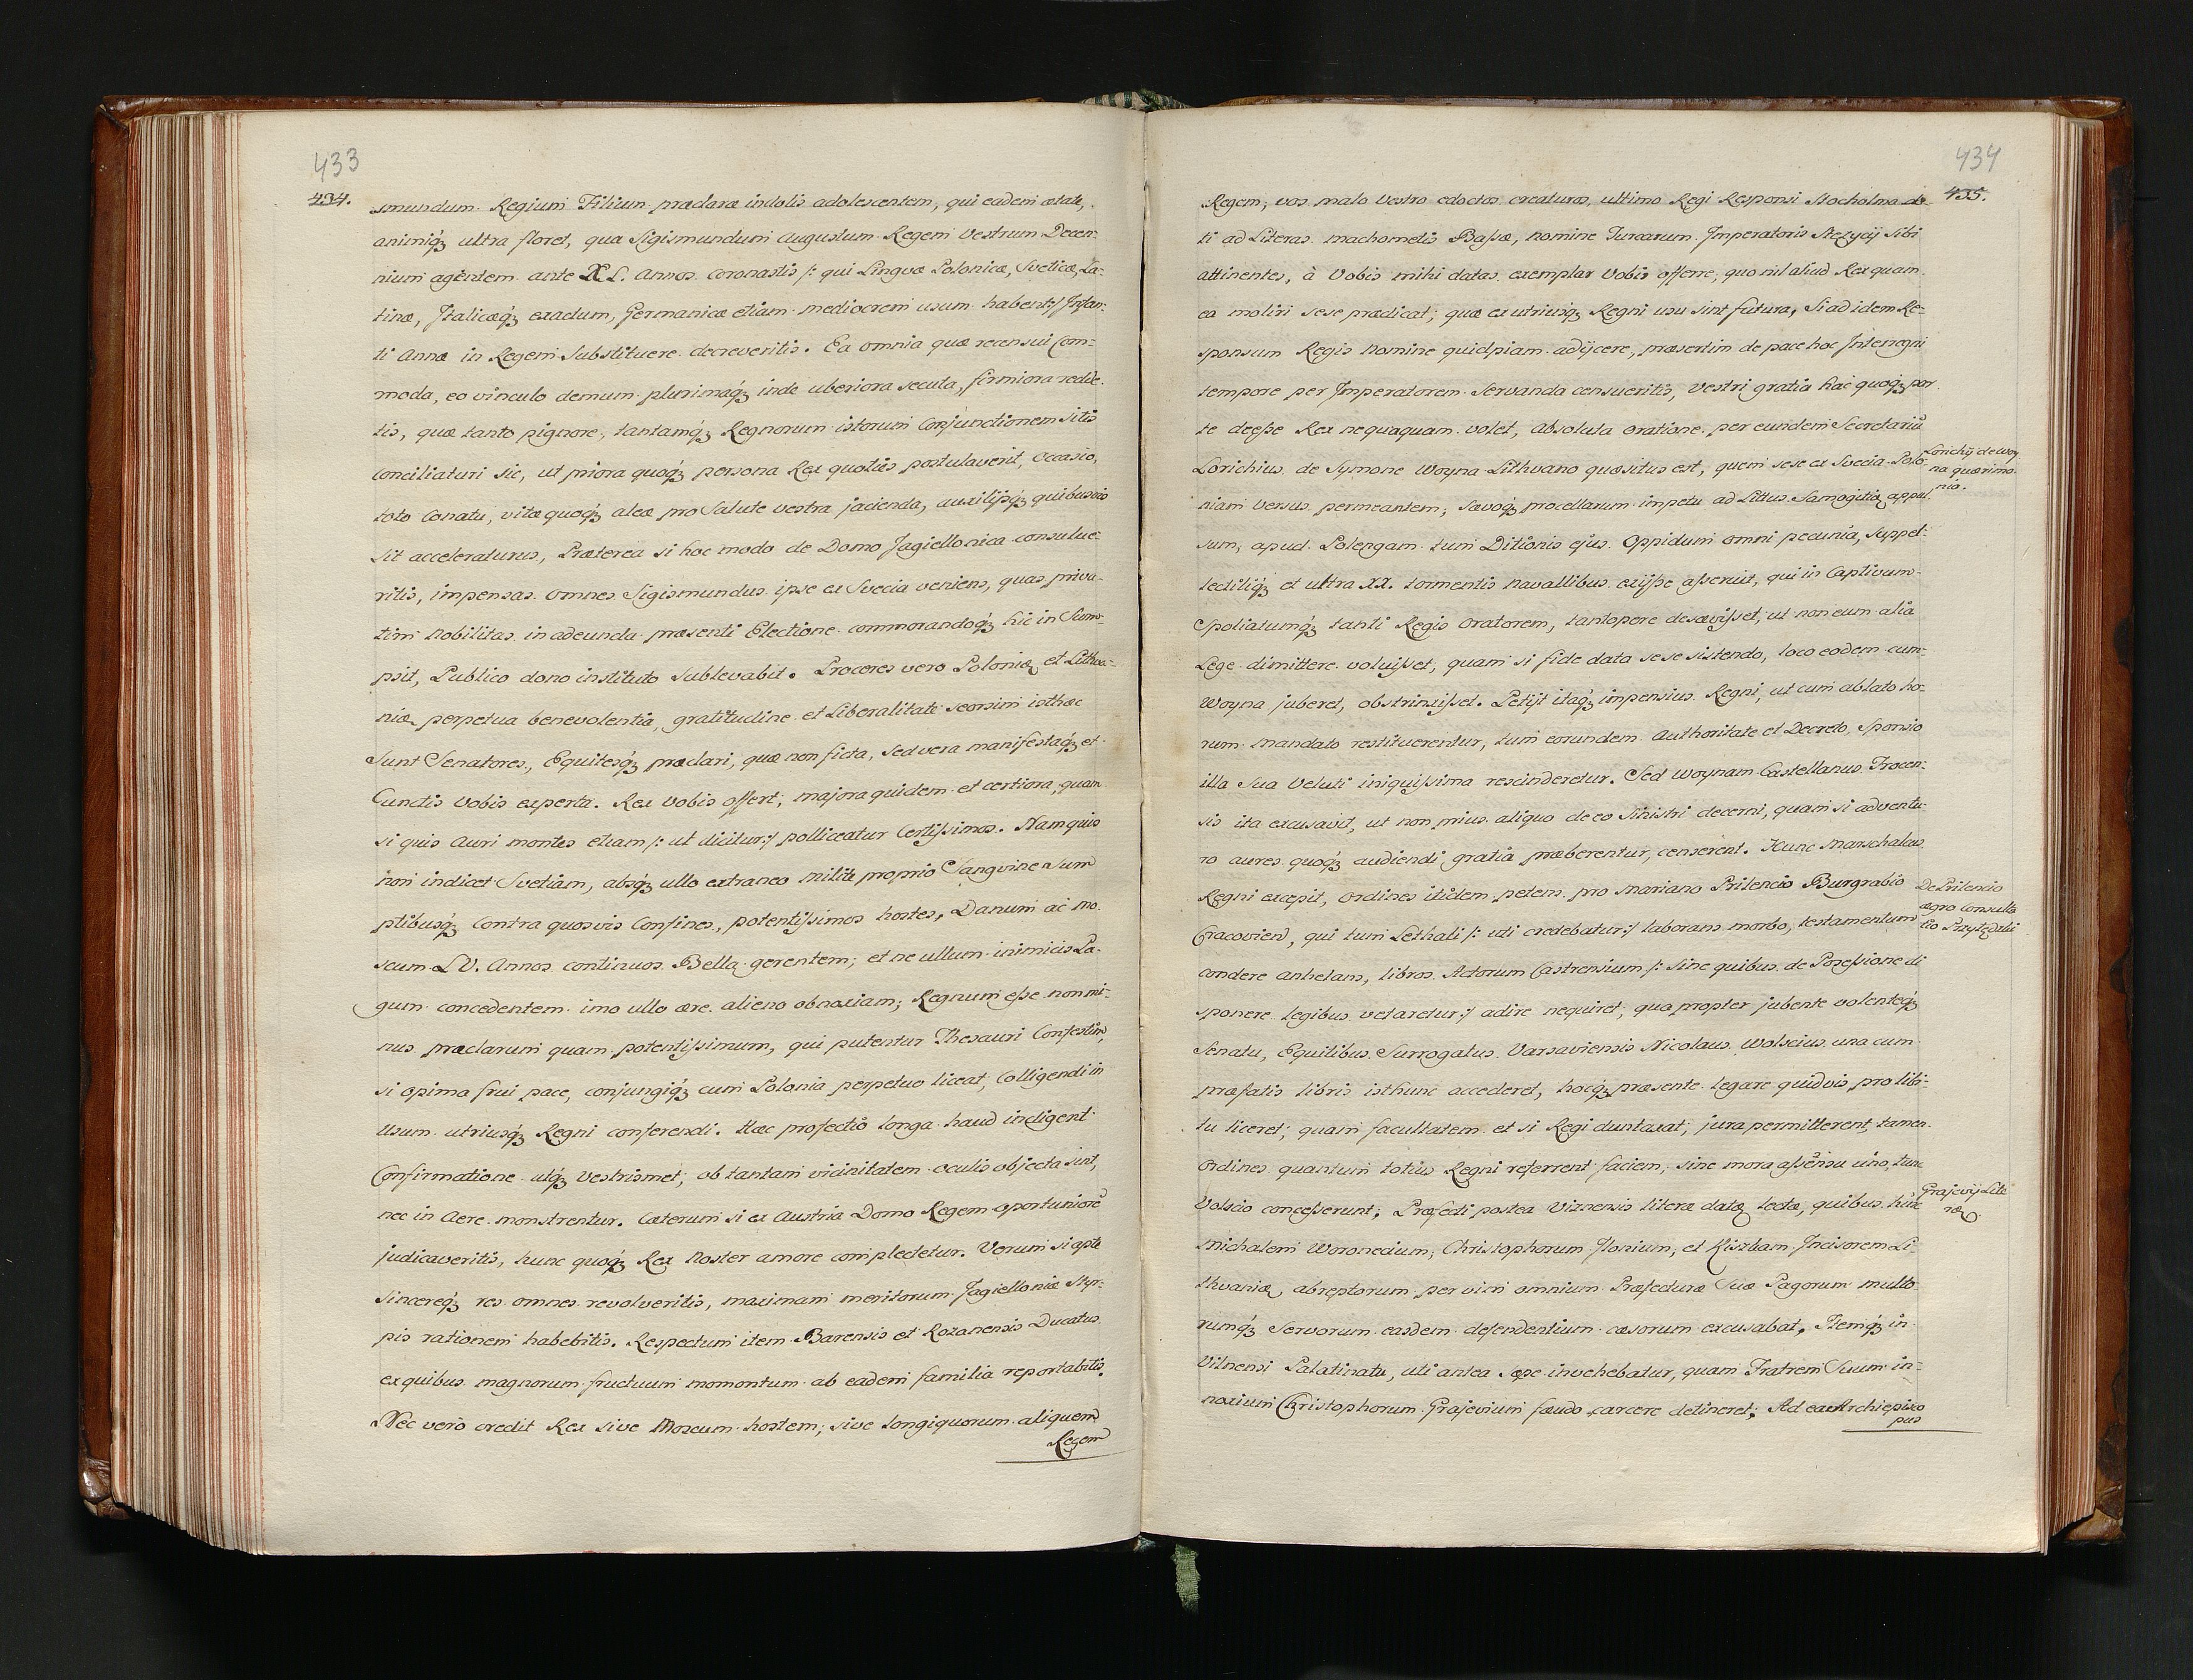 433
434.
smundum Regium Filium præclaræ indolis adolescentem, qui eadem ætate,
animiq́ꝫ ultra floret, qua Sigismundum Augustum Regem Vestrum Decen=
nium agentem ante XL. Annos coronastis /: qui Linguæ Polonicæ, Sveticæ, La=
tinæ, Italicæq́ꝫ exactum, Germanicæ etiam mediocrem usum habent :/ Infan=
ti Annæ in Regem Substituere decreveritis. Ea omnia quæ recensui Com=
moda, eo vinculo demum plurimaq́ꝫ inde uberiora secuta, firmiora redde=
tis, quæ tanto pignore, tantamq́ꝫ Regnorum istorum Conjunctionem sitis
conciliaturi sic, ut priora quoq́ꝫ persona Rex quoties postulaverit, Occasio,
toto Conatu, vitæ quoq́ꝫ aleæ pro Salute vestra jacienda, auxilijsq́ꝫ quibusvis
sit acceleraturus, Præterea si hoc modo de Domo Jagiellonica consulue=
ritis, impensas omnes Sigismundus ipse ex Svecia veniens, quas priva=
tim Nobilitas in adeunda præsenti Electione commorandoq́ꝫ hic in Sum=
psit, Publico dono instituto Sublevabit. Proceres vero Poloniæ et Lithva=
niæ perpetua benevolentia, gratitudine et Liberalitate seorsim isthæc
Sunt Senatores, Equitesq́ꝫ præclari, quæ non ficta, sed vera manifestaq́ꝫ et
Cunctis Vobis experta. Rex Vobis offert, majora quidem et certiora, quam
si quis Auri montes etiam /: ut dicitur :/ polliceatur Certissimos. Nam quis
non indicet Svetiam, absq́ꝫ ullo extraneo milite proprio Sangvine Sum
ptibusq́ꝫ Contra quosvis Confines, potentissimos hostes, Danum ac Mo=
scum LV. Annos continuos Bella gerentem; et ne ullum inimicis Pa=
gum concedentem imo ullo ære alieno obnoxiam; Regnum esse non mi=
nus præclarum quam potentissimum, qui putentur Thesauri Confestim,
si opima frui pace, conjungiq́ꝫ cum Polonia perpetuo liceat, Colligendi in
Usum utriusq́ꝫ Regni conferendi. Hæc profectò longa haud indigent
Confirmatione utq́ꝫ Vestrismet, ob tantam vicinitatem oculis objecta sint,
nec in Aere monstrentur. Cæterum si ex Austria Domo Regem oportuniorē
judicaveritis, hunc quoq́ꝫ Rex Noster amore complectetur. Verum si apte
sincereq́ꝫ res omnes revolveritis, maximam meritorum Jagielloniæ Styr=
pis rationem habebitis. Respectum item Barensis et Rozanensis Ducatus
ex quibus magnorum fructuum momontum ab eadem familia reportabitis.
Nec verò credit Rex sive Moscum hostem; sive longiquorum aliquem
Regem
434
435.
Regem, vos malo Vestro edoctos creaturos, ultimo Regi Responsi Stocholma da=
ti ad Literas machometis Bassæ, nomine Turcarum Imperatoris Stezycij Sibi
attinentes, à Vobis mihi datas exemplar Vobis offerre, quo nil aliud Rex quam
ea moliri sese prædicat; quæ ex utriusq́ꝫ Regni usu sint futura, Si ad idem Re=
sponsum Regis Nomine quidpiam adijcere, præsertim de pace hoc Interregni
tempore per Imperatorem Servanda censueritis, Vestri gratia hac quoq́ꝫ par
te deesse Rex nequaquam volet, Absoluta oratione per eundem Secretariū
Lorichius de Symone Woyna Lithvano quæsitus est, quem sese ex Svecia Polo=
niam versus permeantem, Sævoq́ꝫ procellarum impetu ad Littus Samogitiæ appul
sum, apud Polengam tum Ditionis ejus Oppidum omni pecunia, Suppel=
lectiliq́ꝫ et ultra XX. tormentis navallibus exijsse asseruit, qui in Captivum
Spoliatumq́ꝫ tanti Regis Oratorem, tantopere desævisset, ut non eum alia
Lege dimittere voluisset, quam si fide data sese sistendo, loco eodem cum
Woyna juberet, obstrinxisset. Petijt itaq́ꝫ impensius Regni, ut cum ablato ho=
rum mandato restituerentur, tum eorundem Authoritate et Decreto, Sponsio
illa Sua Veluti iniquissima rescinderetur. Sed Woynam Castellanus Trocen=
sis ita excusavit, ut non prius aliquo de eo Sinistri decerni, quam si adventu
ro aures quoq́ꝫ audiendi gratia præberentur, censerent. Hunc Marschalcus
Regni excepit, Ordines itidem petens pro Mariano Prilencio Burgrabio
Cracovien̄, qui tum Lethali /: uti credebatur :/ laborans morbo, testamentum
condere anhelans, libros Actorum Castrensium /: sine quibus de Posessione di
sponere legibus vetaretur :/ adire nequiret, qua propter jubente volenteq́ꝫ
Senatu, Equitibus Surrogatus Varsaviensis Nicolaus Wolscius una cum
præfatis libris isthunc accederet, hocq́ꝫ præsente legare quidvis pro libi=
tu liceret; quam facultatem et si Regi duntaxat, jura permitterent, tamen
Ordines quantum totius Regni referrent faciem, sine mora assensu uno, tunc
Volscio concesserunt; Præfecti postea Viznensis literæ datæ lectæ, quibus hunc
Michalem Woronecium, Christophorum Ilonium, et Kiszkam Incisorem Li=
thvaniæ abreptorum per vim omnium Præfecturæ Suæ Pagorum multo
rumq́ꝫ Servorum easdem defendentium cæsorum excusabat, Itemq́ꝫ in
Vilnensi Palatinatu, uti antea sæpe invehebatur, quam Fratrem Suum in=
noxium Christophorum Grajevium fœdo carcere detineret; Ad ea Archiepisco
pus
Lorichij de Woy
na quærimo=
nia.
De Prilencio
ægro Consulta
tio
Grajevij Lite
ræ.